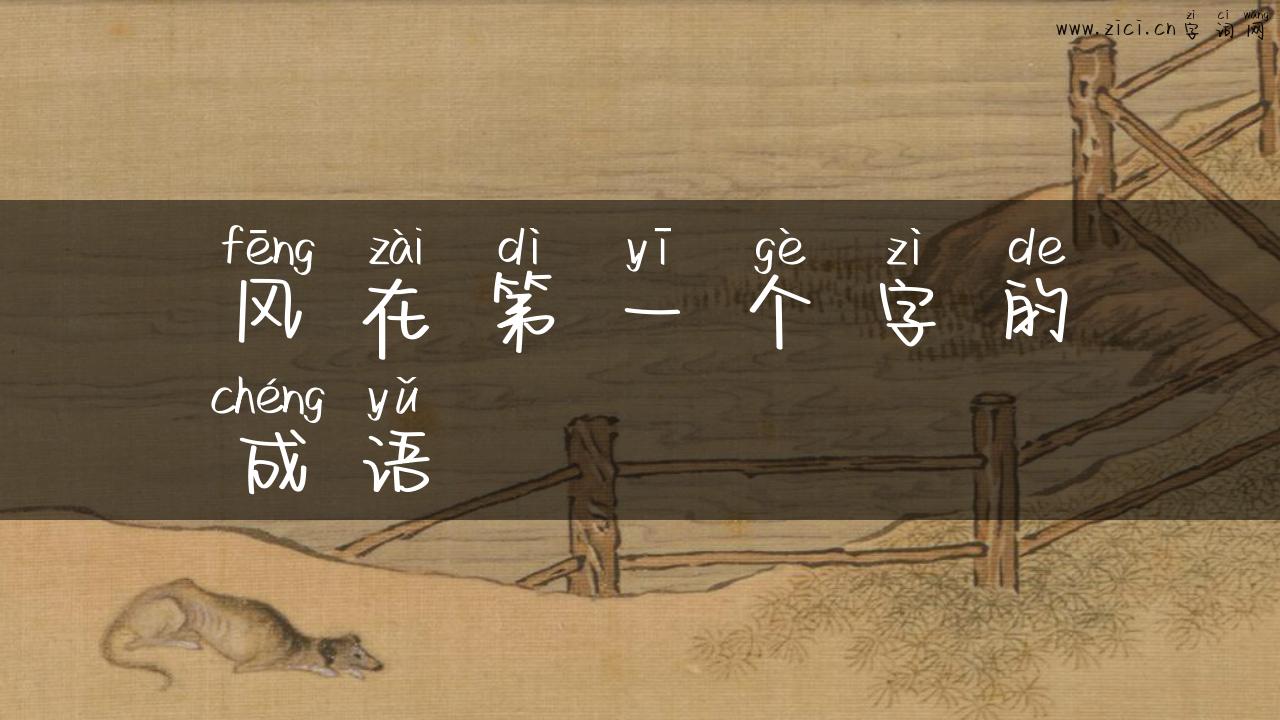 zì cí wǎng
www.zici.cn 字词网
fēng zài dì yī gè zì de
风在第一个字的
chéng yǔ
成语